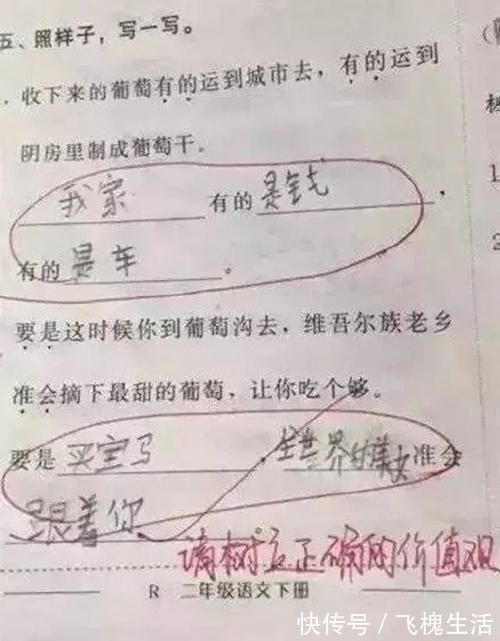 五、照样子，写一写。
收下来的葡萄有的运到城市去，有的运到
阴房里制成葡萄干。
我家有的是钱，
有的是车。
要是这时候你到葡萄沟去，维吾尔族老乡
准会摘下最甜的葡萄，让你吃个够。
要是买宝马，全世界的美女准会
跟着你
请树立正确的价值观
R 二年级语文下册
快传号 / 飞槐生活